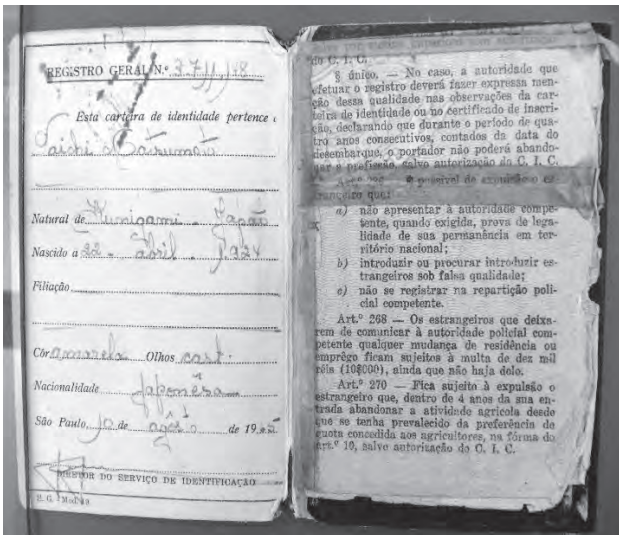 REGISTRO GERAL N.º
Esta carteira de identidade pertence
Natural de Kunigami - Japão
Nascido a 22 - Abril - 1.924
Filiação
Côr amarela Olhos cast.
Nacionalidade Japonêsa
São Paulo, de agôsto de 19
DIRETOR DO SERVIÇO DE IDENTIFICAÇÃO
do C. I. C.
§ único. — No caso, a autoridade que
efetuar o registro deverá fazer expressa men-
ção dessa qualidade nas observações da car-
teira de identidade ou no certificado de inscri-
ção, declarando que durante o período de qua-
tro anos consecutivos, contados da data do
desembarque, o portador não poderá abando-
nar a profissão, salvo autorização do C. I. C.
é passível de expulsão o es-
trangeiro que:
a) não apresentar à autoridade compe-
tente, quando exigida, prova de lega-
lidade de sua permanência em ter-
ritório nacional;
b) introduzir ou procurar introduzir es-
trangeiros sob falsa qualidade;
c) não se registrar na repartição poli-
cial competente.
Art.º 268 — Os estrangeiros que deixa-
rem de comunicar à autoridade policial com-
petente qualquer mudança de residência ou
emprêgo ficam sujeitos à multa de dez mil
réis (10$000), ainda que não haja dolo.
Art.º 270 — Fica sujeito à expulsão o
estrangeiro que, dentro de 4 anos da sua en-
trada abandonar a atividade agrícola desde
que se tenha prevalecido da preferência de
quota concedida aos agricultores, na fórma do
art.º 10, salvo autorização do C. I. C.